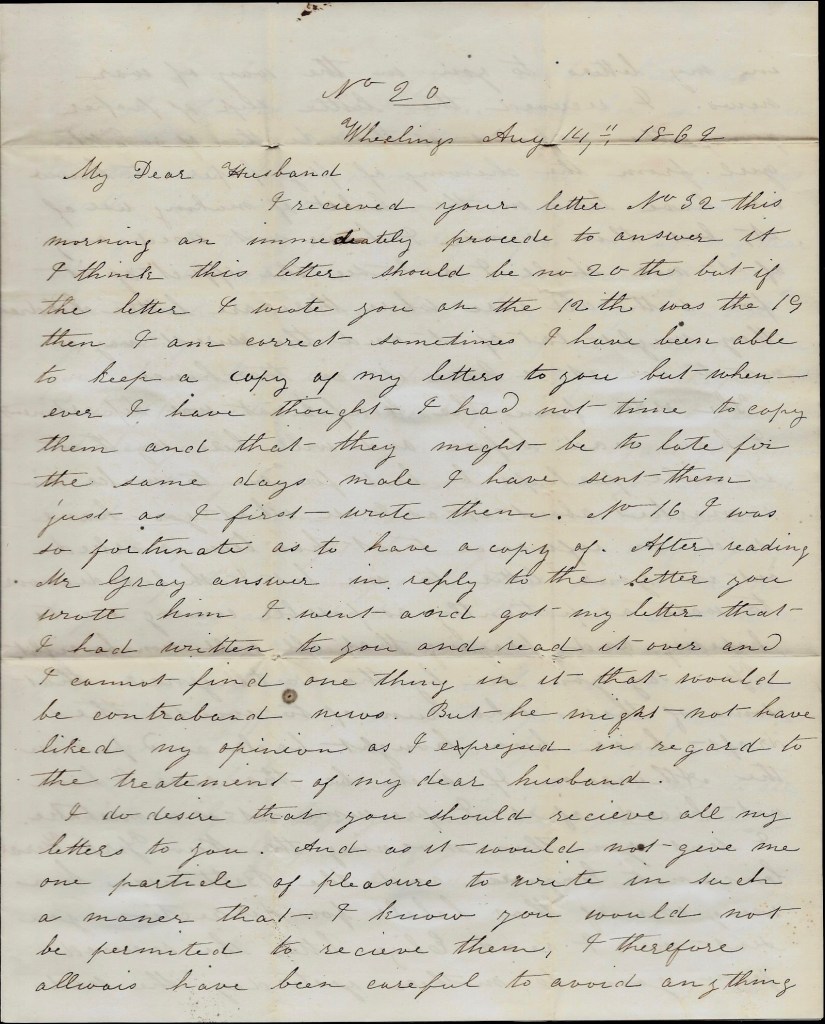 No 20
Wheeling Aug 14,", 1862
My Dear Husband
I recieved your letter No 32 this
morning an immediately procede to answer it
I think this letter should be no 20th but if
the letter I wrote you on the 12th was the 19
then I am correct sometimes I have been able
to keep a copy of my letters to you but when-
ever I have thought I had not time to copy
them and that they might be to late for
the same days male I have sent them
just as I first wrote them. No 16 I was
so fortunate as to have a copy of. After reading
Mr Gray answer in reply to the letter you
wrote him I went and got my letter that
I had written to you and read it over and
I cannot find one thing in it that would
be contraband news. But he might not have
liked my opinion as I expressed in regard to
the treatement of my dear husband.
I do desire that you should recieve all my
letters to you. And as it would not give me
one particle of pleasure to write in such
a maner that I know you would not
be permited to recieve them, I therefore
allwais have been careful to avoid anything